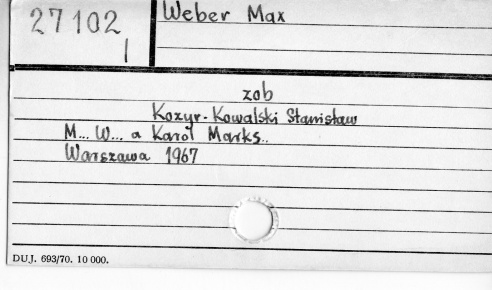 27102 Weber Max
I
zob
Kozyr-Kowalski Stanisław
M... W... a Karol Marks..
Warszawa 1967
DUJ. 693/70. 10 000.